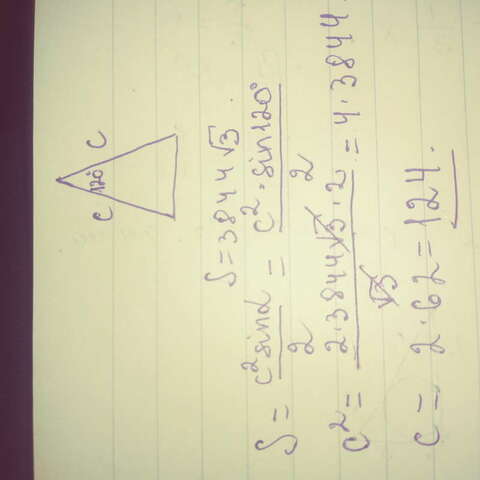 C C
120°
S = 3844√3.
S = c² sinα / 2 = c² · sin120° / 2
c² = 2·3844√3·2 / √3 = 4·3844.
c = 2·62 = 124.